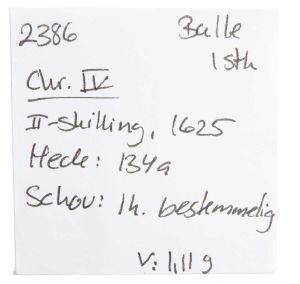 2386
Balle
1 stk
Chr. IV
II-skilling, 1625
Hede: 134a
Schou: Ih. bestemmelig
V: 1,11 g